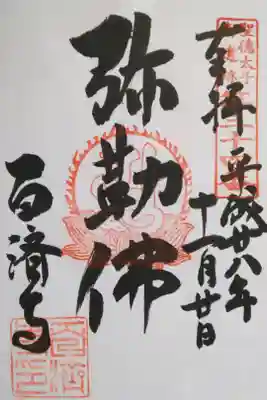 聖徳太子
奉拝 平成廿八年
十一月廿日
弥勒佛
百済寺